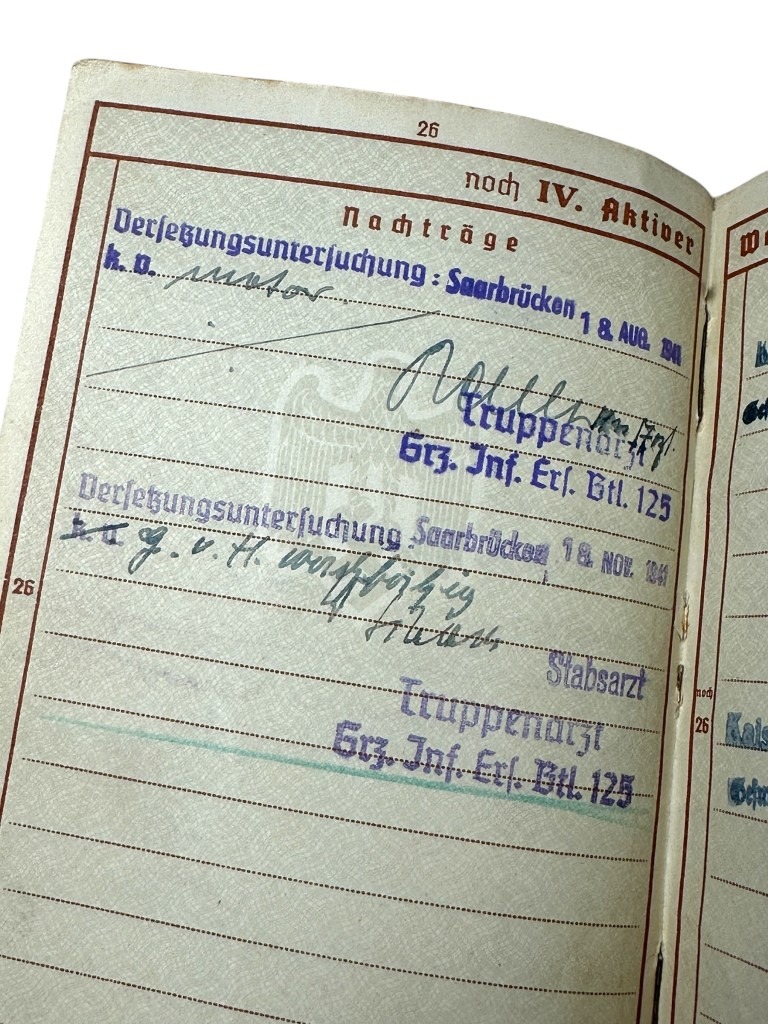 26
noch IV. Aktiver
Nachträge
Versetzungsuntersuchung: Saarbrücken 18. AUG. 1941
k. v. motor.
Truppenarzt
Grz. Inf. Ers. Btl. 125
Versetzungsuntersuchung Saarbrücken 18. NOV. 1941
k. v. g. v. H.
Stabsarzt
Truppenarzt
Grz. Inf. Ers. Btl. 125
26
noch
26